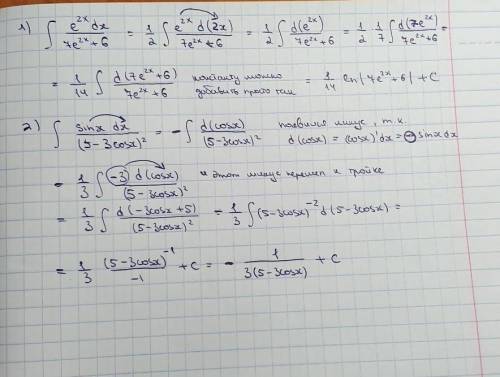 1) ∫ e^{2x} dx / (7e^{2x}+6) = 1/2 ∫ e^{2x} d(2x) / (7e^{2x}+6) = 1/2 ∫ d(e^{2x}) / (7e^{2x}+6) = 1/2 · 1/7 ∫ d(7e^{2x}) / (7e^{2x}+6) =
= 1/14 ∫ d(7e^{2x}+6) / (7e^{2x}+6) константу можно добавить просто так = 1/14 ln|7e^{2x}+6| + C
2) ∫ sinx dx / (5-3cosx)^2 = -∫ d(cosx) / (5-3cosx)^2 появился минус, т.к. d(cosx) = (cosx)'dx = -sinx dx
= 1/3 ∫ (-3) d(cosx) / (5-3cosx)^2 и этот минус перешел к тройке
= 1/3 ∫ d(-3cosx+5) / (5-3cosx)^2 = 1/3 ∫ (5-3cosx)^{-2} d(5-3cosx) =
= 1/3 (5-3cosx)^{-1} / -1 + C = - 1 / 3(5-3cosx) + C